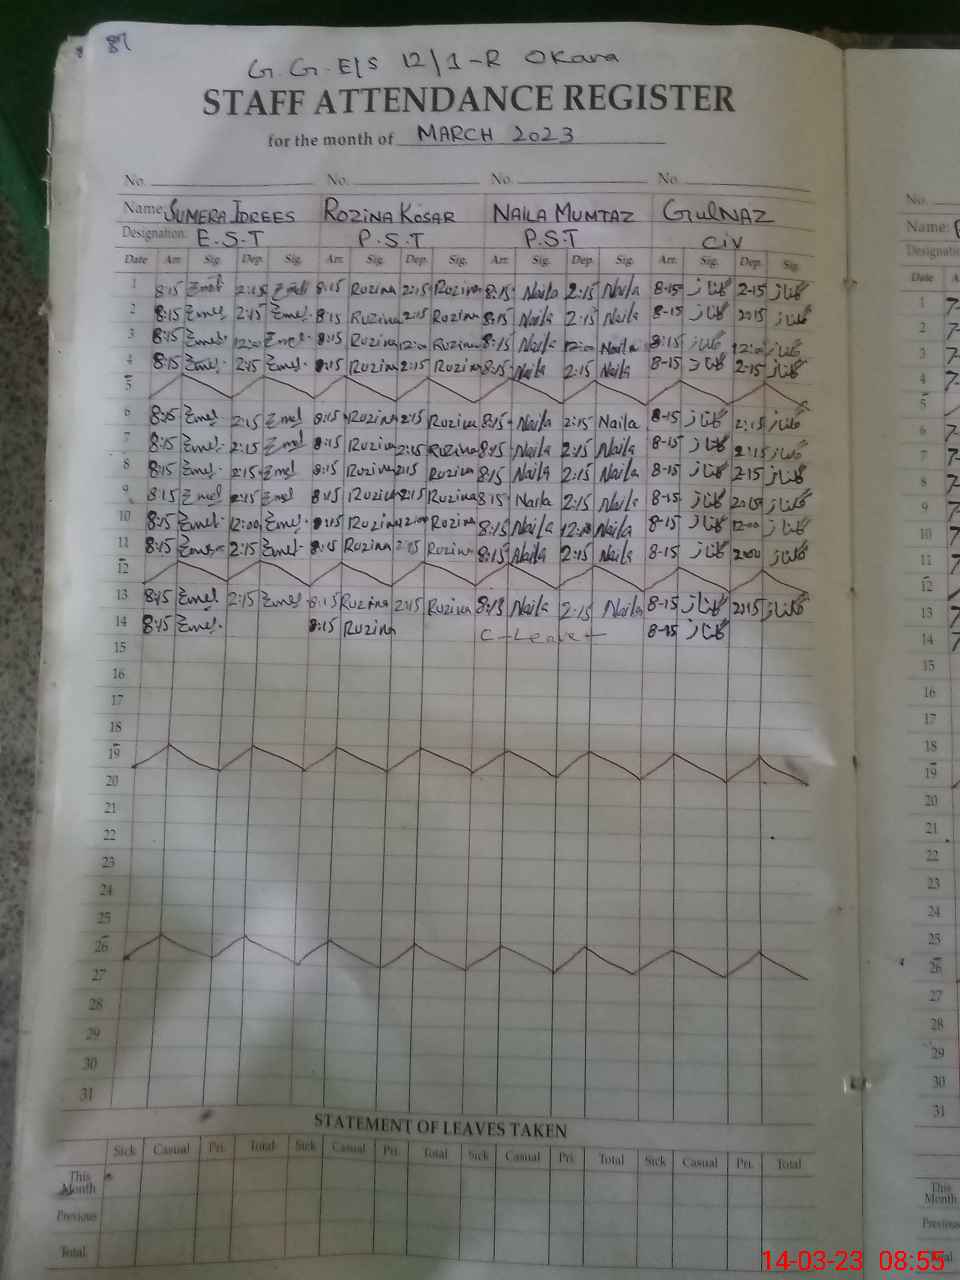 87
G.G.E/S 12/1-R Okara
STAFF ATTENDANCE REGISTER
for the month of MARCH 2023
No. No. No. No.
Name: SUMERA IDREES ROZINA KOSAR NAILA MUMTAZ GulNAZ
Designation: E.S.T P.S.T P.S.T CIV
Date Arr. Sig. Dep. Sig. Arr. Sig. Dep. Sig. Arr. Sig. Dep. Sig. Arr. Sig. Dep. Sig.
1 8:15 2:15 8:15 Rozina 2:15 Rozina 8:15 Naila 2:15 Naila 8-15 گلناز 2-15 گلناز
2 8:15 2:15 8:15 Rozina 2:15 Rozina 8:15 Naila 2:15 Naila 8-15 گلناز 2:15 گلناز
3 8:15 12:00 8:15 Rozina 12:00 Rozina 8:15 Naila 12:00 Naila 8:15 گلناز 12:00 گلناز
4 8:15 2:15 8:15 Rozina 2:15 Rozina 8:15 Naila 2:15 Naila 8-15 گلناز 2-15 گلناز
5
6 8:15 2:15 8:15 Rozina 2:15 Rozina 8:15 Naila 2:15 Naila 8-15 گلناز 2:15 گلناز
7 8:15 2:15 8:15 Rozina 2:15 Rozina 8:15 Naila 2:15 Naila 8-15 گلناز 2:15 گلناز
8 8:15 2:15 8:15 Rozina 2:15 Rozina 8:15 Naila 2:15 Naila 8-15 گلناز 2-15 گلناز
9 8:15 2:15 8:15 Rozina 2:15 Rozina 8:15 Naila 2:15 Naila 8-15 گلناز گلناز
10 8:15 12:00 8:15 Rozina 12:00 Rozina 8:15 Naila 12:00 Naila 8-15 گلناز 12:00 گلناز
11 8:15 2:15 8:15 Rozina 2:15 Rozina 8:15 Naila 2:15 Naila 8-15 گلناز گلناز
12
13 8:15 2:15 8:15 Rozina 2:15 Rozina 8:15 Naila 2:15 Naila 8-15 گلناز 2:15 گلناز
14 8:15 8:15 Rozina C-Leave 8-15 گلناز
15
16
17
18
19
20
21
22
23
24
25
26
27
28
29
30
31
STATEMENT OF LEAVES TAKEN
Sick Casual Pri. Total Sick Casual Pri. Total Sick Casual Pri. Total Sick Casual Pri. Total
This Month
Previous
Total
No.
Name:
Designation
Date A
1 7-
2 7-
3 7-
4 7-
5
6 7-
7 7-
8 7-
9 7-
10 7-
11 7-
12
13 7-
14 7-
15
16
17
18
19
20
21
22
23
24
25
26
27
28
29
30
31
This Month
Previous
Total
14-03-23 08:55